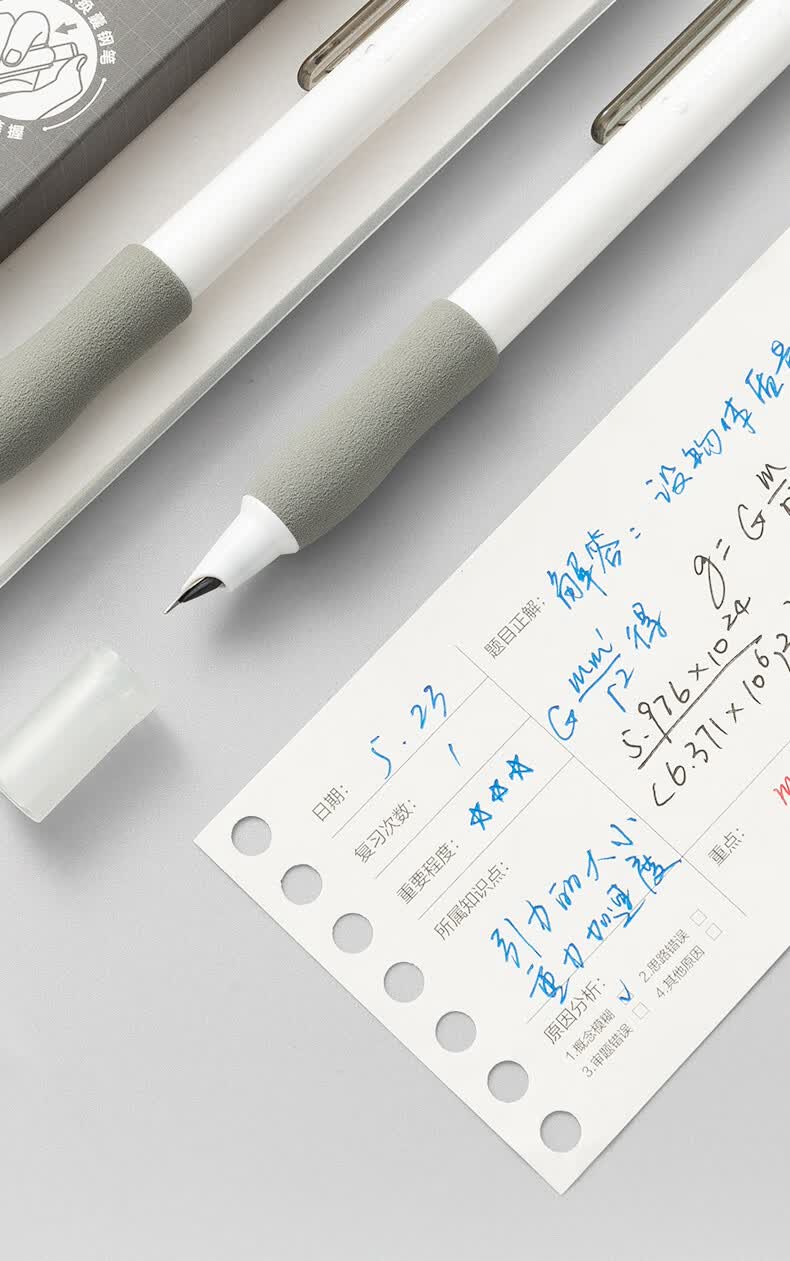 换囊钢笔
握
日期：
5.23
复习次数：
1
重要程度：
☆☆☆
所属知识点：
引力的大小
重力加速度
原因分析：
1.概念模糊 ✓ 2.思路错误 □
3.审题错误 □ 4.其他原因 □
题目正解：
解答：设物体质量
G mm'/r2 得
g=G m
5.976×10 24
(6.371×10 6)2
重点：